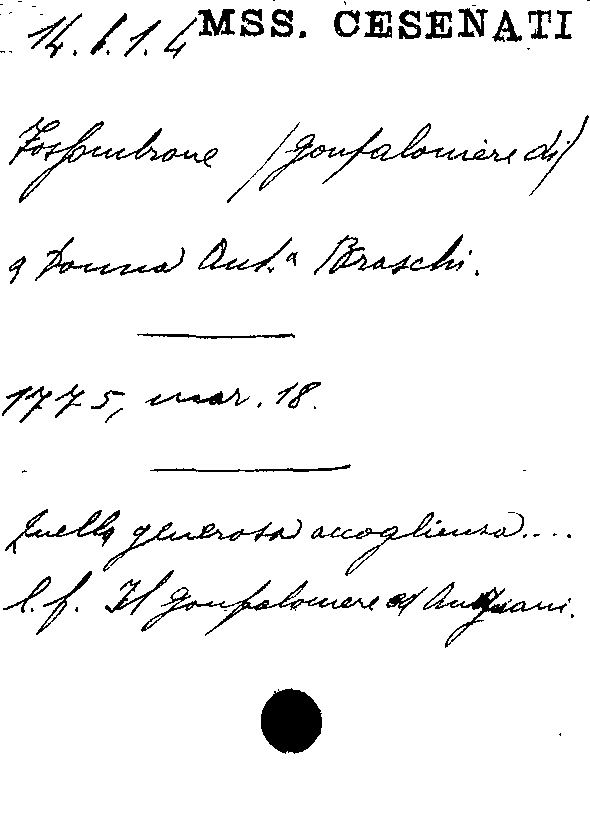 14.6.1.4 MSS. CESENATI
Fossombrone (Gonfaloniere di)
a Donna Ant.a Braschi.
1775, mar. 18.
Quella generosa accoglienza....
l. f. Il Gonfaloniere ed Anziani.